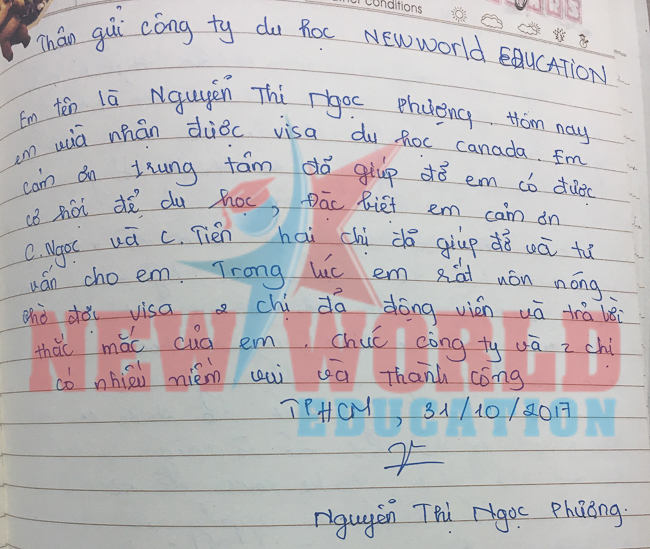 Conditions
Thân gửi công ty du học NEWWORLD EDUCATION
Em tên là Nguyễn Thị Ngọc Phượng. Hôm nay
em vừa nhận được visa du học canada. Em
cảm ơn trung tâm đã giúp đỡ em có được
cơ hội để du học, Đặc biệt em cảm ơn
C.Ngọc và C.Tiên hai chị đã giúp đỡ và tư
vấn cho em. Trong lúc em rất nôn nóng
chờ đợi visa 2 chị đã động viên và trả lời
thắc mắc của em. Chúc công ty và 2 chị
có nhiều niềm vui và thành công
TPHCM, 31/10/2017
Nguyễn Thị Ngọc Phượng.
NEW WORLD
EDUCATION